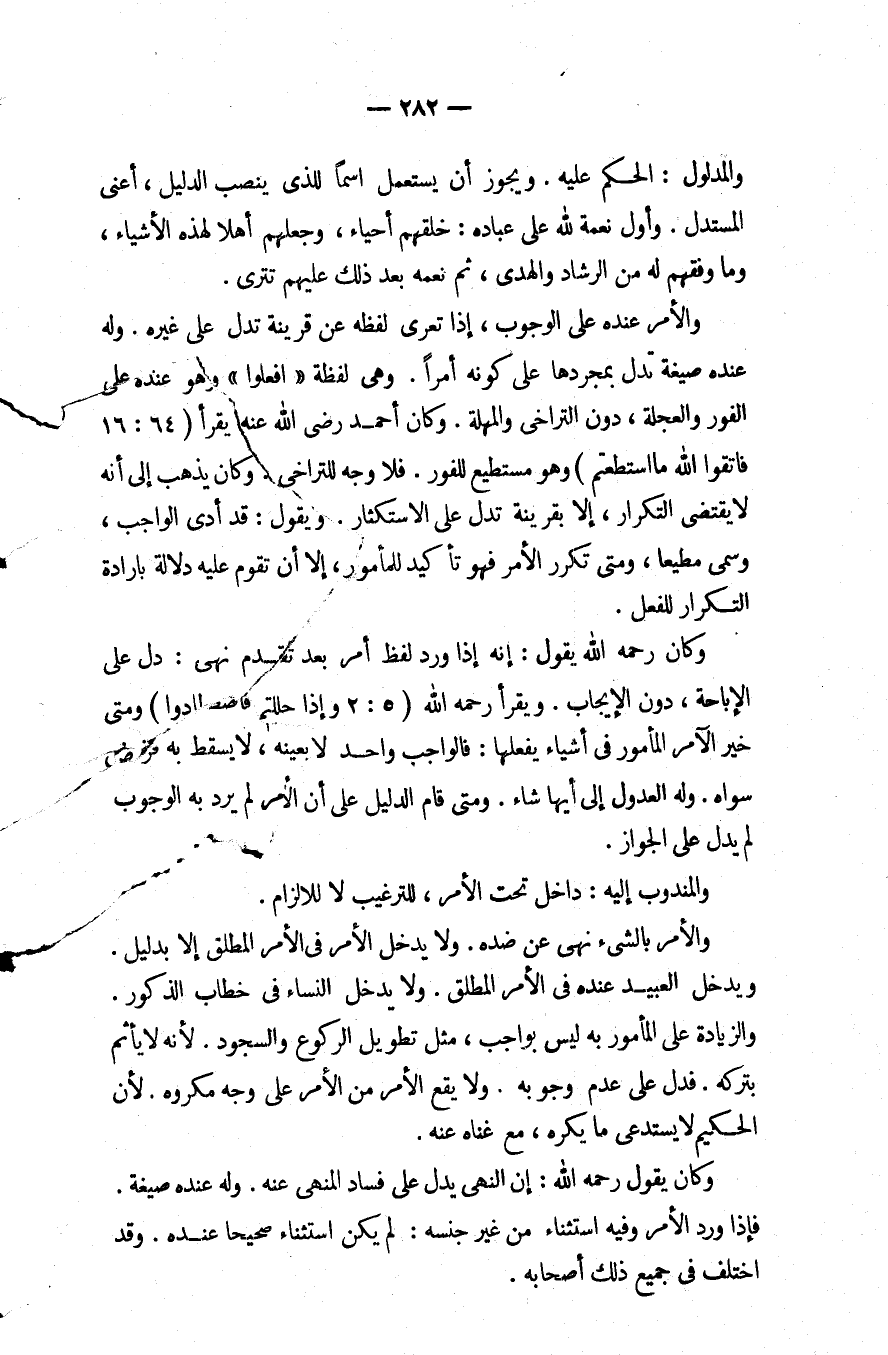 — ٢٨٢ —
والمدلول : الحكم عليه . ويجوز أن يستعمل اسماً للذى ينصب الدليل ، أعنى
المستدل . وأول نعمة لله على عباده : خلقهم أحياء ، وجعلهم أهلا لهذه الأشياء ،
وما وفقهم له من الرشاد والهدى ، ثم نعمه بعد ذلك عليهم تترى .
والأمر عنده على الوجوب ، إذا تعرى لفظه عن قرينة تدل على غيره . وله
عنده صيغة تدل بمجردها على كونه أمراً . وهى لفظة « افعلوا » وهو عنده على
الفور والعجلة ، دون التراخى والمهلة . وكان أحمـد رضى الله عنه يقرأ ( ٦٤ : ١٦
فاتقوا الله مااستطعتم ) وهو مستطيع للفور . فلا وجه للتراخى . وكان يذهب إلى أنه
لايقتضى التكرار ، إلا بقرينة تدل على الاستكثار . ويقول : قد أدى الواجب ،
وسمى مطيعا ، ومتى تكرر الأمر فهو تأكيد للمأمور ، إلا أن تقوم عليه دلالة بارادة
التـكرار للفعل .
وكان رحمه الله يقول : إنه إذا ورد لفظ أمر بعد تقـدم نهى : دل على
الإباحة ، دون الإيجاب . ويقرأ رحمه الله ( ٥ : ٢ وإذا حللتم فاصطادوا ) ومتى
خير الآمر المأمور فى أشياء يفعلها : فالواجب واحـد لابعينه ، لايسقط به فرض
سواه . وله العدول إلى أيها شاء . ومتى قام الدليل على أن الأمر لم يرد به الوجوب
لم يدل على الجواز .
والمندوب إليه : داخل تحت الأمر ، للترغيب لا للالزام .
والأمر بالشىء نهى عن ضده . ولا يدخل الأمر فى الأمر المطلق إلا بدليل .
ويدخل العبيـد عنده فى الأمر المطلق . ولا يدخل النساء فى خطاب الذكور .
والزيادة على المأمور به ليس بواجب ، مثل تطويل الركوع والسجود . لأنه لايأثم
بتركه . فدل على عدم وجوبه . ولا يقع الأمر من الأمر على وجه مكروه . لأن
الحـكيم لايستدعى ما يكره ، مع غناه عنه .
وكان يقول رحمه الله : إن النهى يدل على فساد المنهى عنه . وله عنده صيغة .
فإذا ورد الأمر وفيه استثناء من غير جنسه : لم يكن استثناء صحيحا عنـده . وقد
اختلف فى جميع ذلك أصحابه .